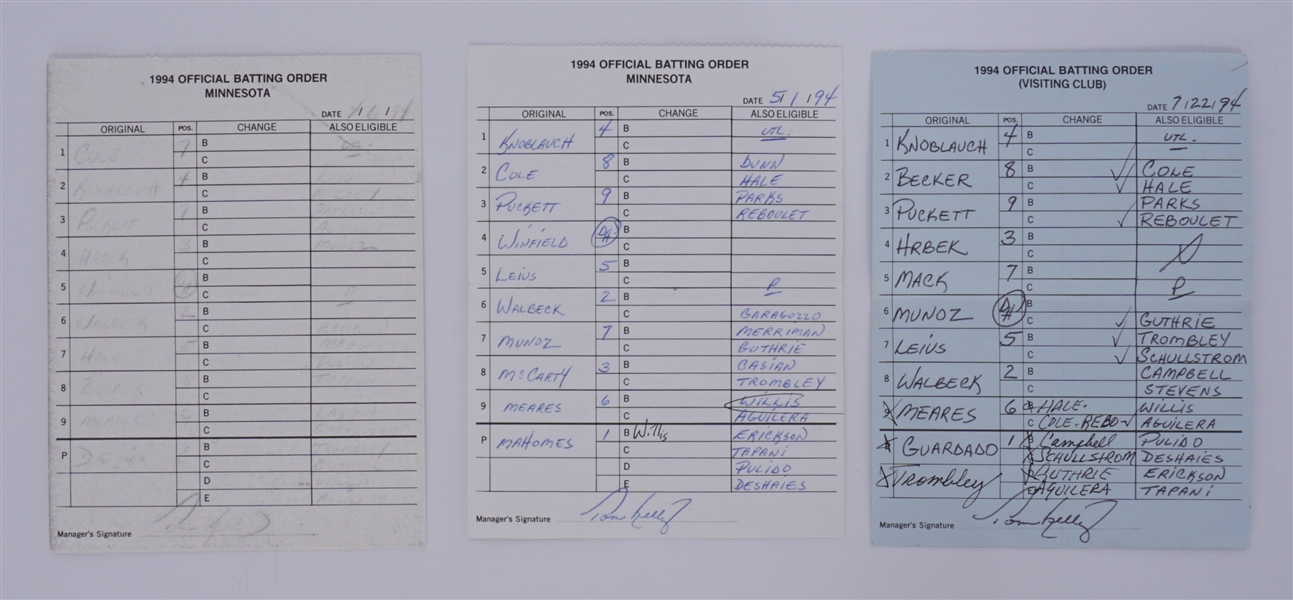 1994 OFFICIAL BATTING ORDER
MINNESOTA
DATE
ORIGINAL POS. CHANGE ALSO ELIGIBLE
1 COLE 7 B UTL.
C
2 KNOBLAUCH 4 B
C
3 PUCKETT B
C
4 HRBEK 3 B MUNOZ
C
5 B
C P
6 WALBECK 2 B
C ERICKSON
7 5 B
C
8 B
C
9 MEARES 6 B
C
P 1 B
C
D
E
Manager's Signature Tom Kelly
1994 OFFICIAL BATTING ORDER
MINNESOTA
DATE 5/1/94
ORIGINAL POS. CHANGE ALSO ELIGIBLE
1 KNOBLAUCH 4 B UTL.
C
2 COLE 8 B DUNN
C HALE
3 PUCKETT 9 B PARKS
C REBOULET
4 WINFIELD DH B
C
5 LEIUS 5 B
C P
6 WALBECK 2 B
C GARAGOZZO
7 MUNOZ 7 B MERRIMAN
C GUTHRIE
8 McCARTY 3 B CASIAN
C TROMBLEY
9 MEARES 6 B WILLIS
C AGUILERA
P MAHOMES 1 B Willis ERICKSON
C TAPANI
D PULIDO
E DESHAIES
Manager's Signature Tom Kelly
1994 OFFICIAL BATTING ORDER
(VISITING CLUB)
DATE 7/22/94
ORIGINAL POS. CHANGE ALSO ELIGIBLE
1 KNOBLAUCH 4 B UTL.
C
2 BECKER 8 B COLE
C HALE
3 PUCKETT 9 B PARKS
C REBOULET
4 HRBEK 3 B
C
5 MACK 7 B
C P
6 MUNOZ DH B
C GUTHRIE
7 LEIUS 5 B TROMBLEY
C SCHULLSTROM
8 WALBECK 2 B CAMPBELL
C STEVENS
9 MEARES 6 B HALE. WILLIS
C COLE-REBO AGUILERA
P GUARDADO 1 B Campbell PULIDO
C SCHULLSTROM DESHAIES
Trombley D GUTHRIE ERICKSON
E AGUILERA TAPANI
Manager's Signature Tom Kelly